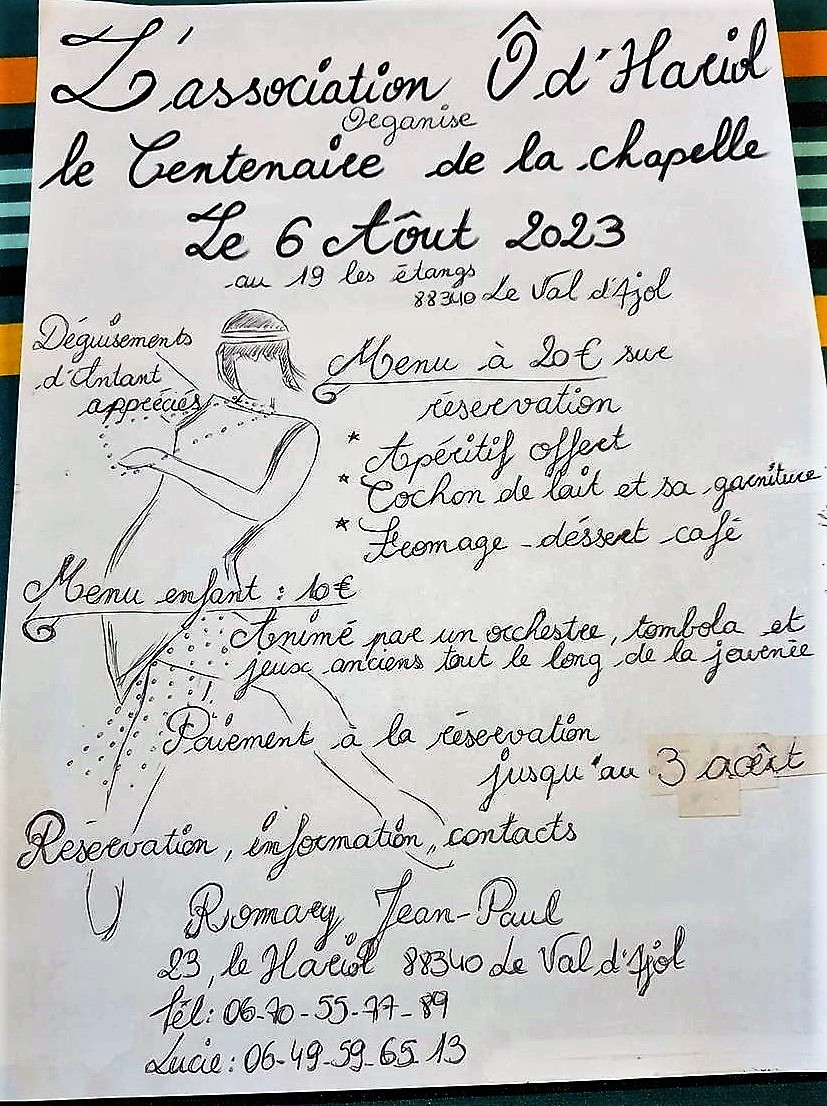 L'association Ô d'Hariol
Organise
le Centenaire de la chapelle
Le 6 Aôut 2023
au 19 les étangs
88340 Le Val d'Ajol
Déguisements
d'Antant
appréciés
Menu à 20€ sur
réservation
* Apéritif offert
* Cochon de lait et sa garniture
* Fromage - déssert - café
Menu enfant : 10€
Animé par un orchestre, tombola et
jeux anciens tout le long de la journée
Paiement à la réservation
jusqu'au 3 août
Réservation, information, contacts
Romary Jean-Paul
23, le Hariol 88340 Le Val d'Ajol
Tél: 06-70-55-77-89
Lucie: 06-49-59-65 13